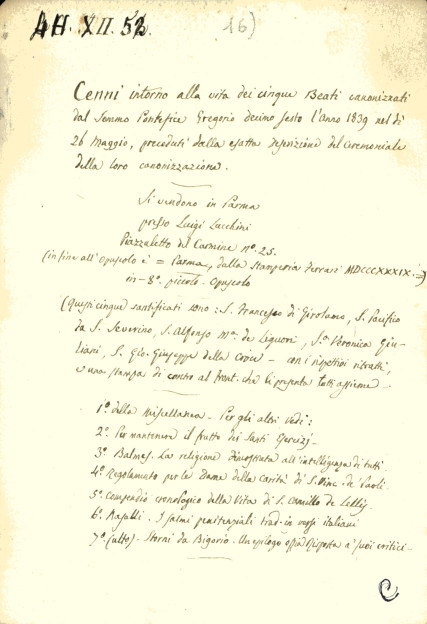 AH. XII. 52. 16)
Cenni intorno alla vita dei cinque Beati canonizzati
dal Sommo Pontefice Gregorio decimo sesto l'Anno 1839 nel dì
26 Maggio, preceduti dalla esatta descrizione del ceremoniale
della loro canonizzazione.
Si vendono in Parma
presso Luigi Zucchini
Piazzaletto del Carmine nº. 25.
(in fine all'Opuscolo è = Parma, dalla Stamperia Ferrari MDCCCXXXIX. =)
in-8º. piccolo. Opuscolo
(questi cinque santificati sono: S. Francesco di Girolamo, S. Pacifico
da S. Severino, S. Alfonso Mª. de Liguori, Sª. Veronica Giu-
liani, S. Gio. Giuseppe della Croce - con i rispettivi ritratti,
e una stampa di contro al front. che li presenta tutti assieme -
1º. della Miscellanea - Per gli altri vedi:
2º. Per mantenere il frutto dei Santi Esercizj -
3º. Balmes. La religione dimostrata all'intelligenza di tutti.
4º. Regolamento per le Dame della carità di S. Vinc. de' Paoli.
5º. Compendio cronologico della Vita di S. Camillo de Lellis.
6º. - I salmi penitenziali trad. in versi italiani
7º. (ulto) - Storni da Bigorio. Un epilogo ossia Risposta a' suoi critici -
C